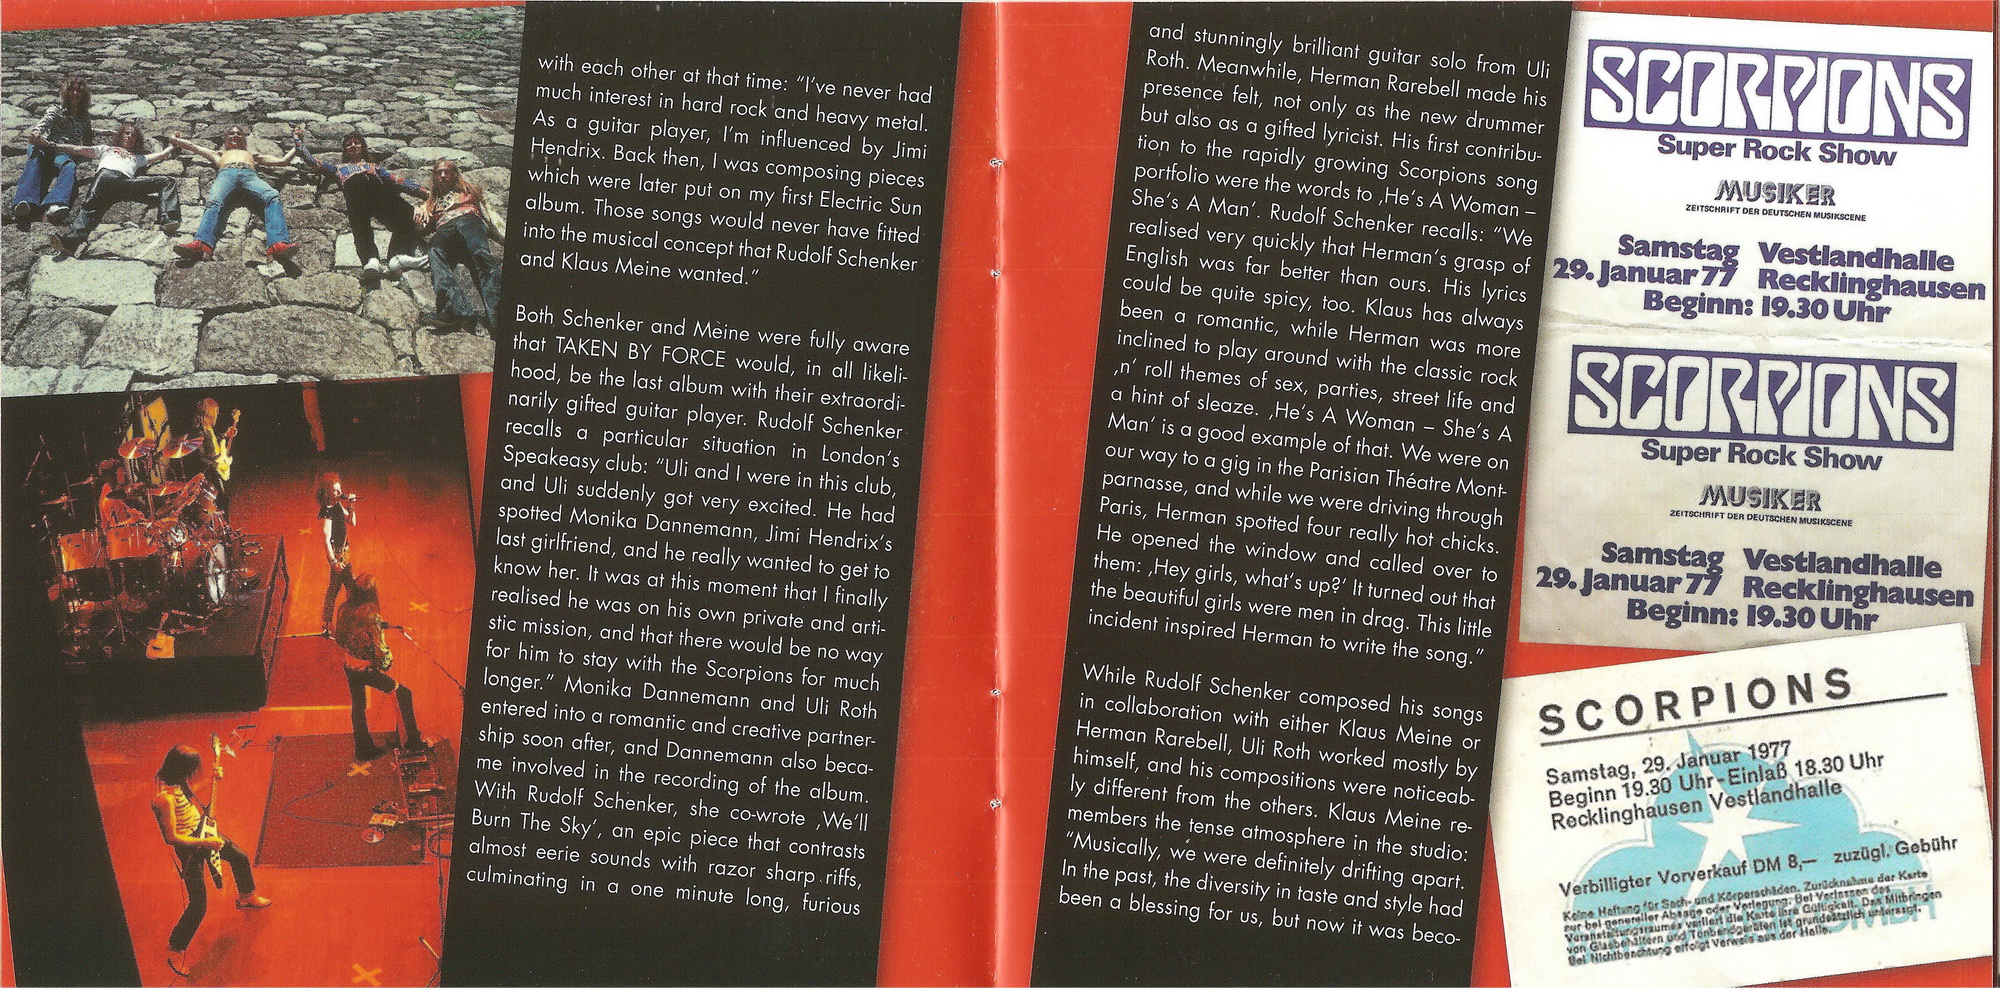 with each other at that time: “I’ve never had
much interest in hard rock and heavy metal.
As a guitar player, I’m influenced by Jimi
Hendrix. Back then, I was composing pieces
which were later put on my first Electric Sun
album. Those songs would never have fitted
into the musical concept that Rudolf Schenker
and Klaus Meine wanted.”
Both Schenker and Meine were fully aware
that TAKEN BY FORCE would, in all likeli-
hood, be the last album with their extraordi-
narily gifted guitar player. Rudolf Schenker
recalls a particular situation in London’s
Speakeasy club: “Uli and I were in this club,
and Uli suddenly got very excited. He had
spotted Monika Dannemann, Jimi Hendrix’s
last girlfriend, and he really wanted to get to
know her. It was at this moment that I finally
realised he was on his own private and arti-
stic mission, and that there would be no way
for him to stay with the Scorpions for much
longer.” Monika Dannemann and Uli Roth
entered into a romantic and creative partner-
ship soon after, and Dannemann also beca-
me involved in the recording of the album.
With Rudolf Schenker, she co-wrote ‚We’ll
Burn The Sky’, an epic piece that contrasts
almost eerie sounds with razor sharp riffs,
culminating in a one minute long, furious
and stunningly brilliant guitar solo from Uli
Roth. Meanwhile, Herman Rarebell made his
presence felt, not only as the new drummer
but also as a gifted lyricist. His first contribu-
tion to the rapidly growing Scorpions song
portfolio were the words to ‚He’s A Woman –
She’s A Man’. Rudolf Schenker recalls: “We
realised very quickly that Herman’s grasp of
English was far better than ours. His lyrics
could be quite spicy, too. Klaus has always
been a romantic, while Herman was more
inclined to play around with the classic rock
‚n’ roll themes of sex, parties, street life and
a hint of sleaze. ‚He’s A Woman – She’s A
Man’ is a good example of that. We were on
our way to a gig in the Parisian Théatre Mont-
parnasse, and while we were driving through
Paris, Herman spotted four really hot chicks.
He opened the window and called over to
them: ‚Hey girls, what’s up?’ It turned out that
the beautiful girls were men in drag. This little
incident inspired Herman to write the song.”
While Rudolf Schenker composed his songs
in collaboration with either Klaus Meine or
Herman Rarebell, Uli Roth worked mostly by
himself, and his compositions were noticeab-
ly different from the others. Klaus Meine re-
members the tense atmosphere in the studio:
“Musically, we were definitely drifting apart.
In the past, the diversity in taste and style had
been a blessing for us, but now it was beco-
SCORPIONS
Super Rock Show
MUSIKER
ZEITSCHRIFT DER DEUTSCHEN MUSIKSCENE
Samstag Vestlandhalle
29. Januar 77 Recklinghausen
Beginn: 19.30 Uhr
SCORPIONS
Super Rock Show
MUSIKER
ZEITSCHRIFT DER DEUTSCHEN MUSIKSCENE
Samstag Vestlandhalle
29. Januar 77 Recklinghausen
Beginn: 19.30 Uhr
SCORPIONS
Samstag, 29. Januar 1977
Beginn 19.30 Uhr-Einlaß 18.30 Uhr
Recklinghausen Vestlandhalle
Verbilligter Vorverkauf DM 8,— zuzügl. Gebühr
Keine Haftung für Sach- und Körperschäden. Zurücknahme der Karte
nur bei genereller Absage oder Verlegung. Bei Verlassen des
Veranstaltungsraumes verliert die Karte ihre Gültigkeit. Das Mitbringen
von Glasbehältern und Tonbandgeräten ist grundsätzlich untersagt.
Bei Nichtbeachtung erfolgt Verweis aus der Halle.